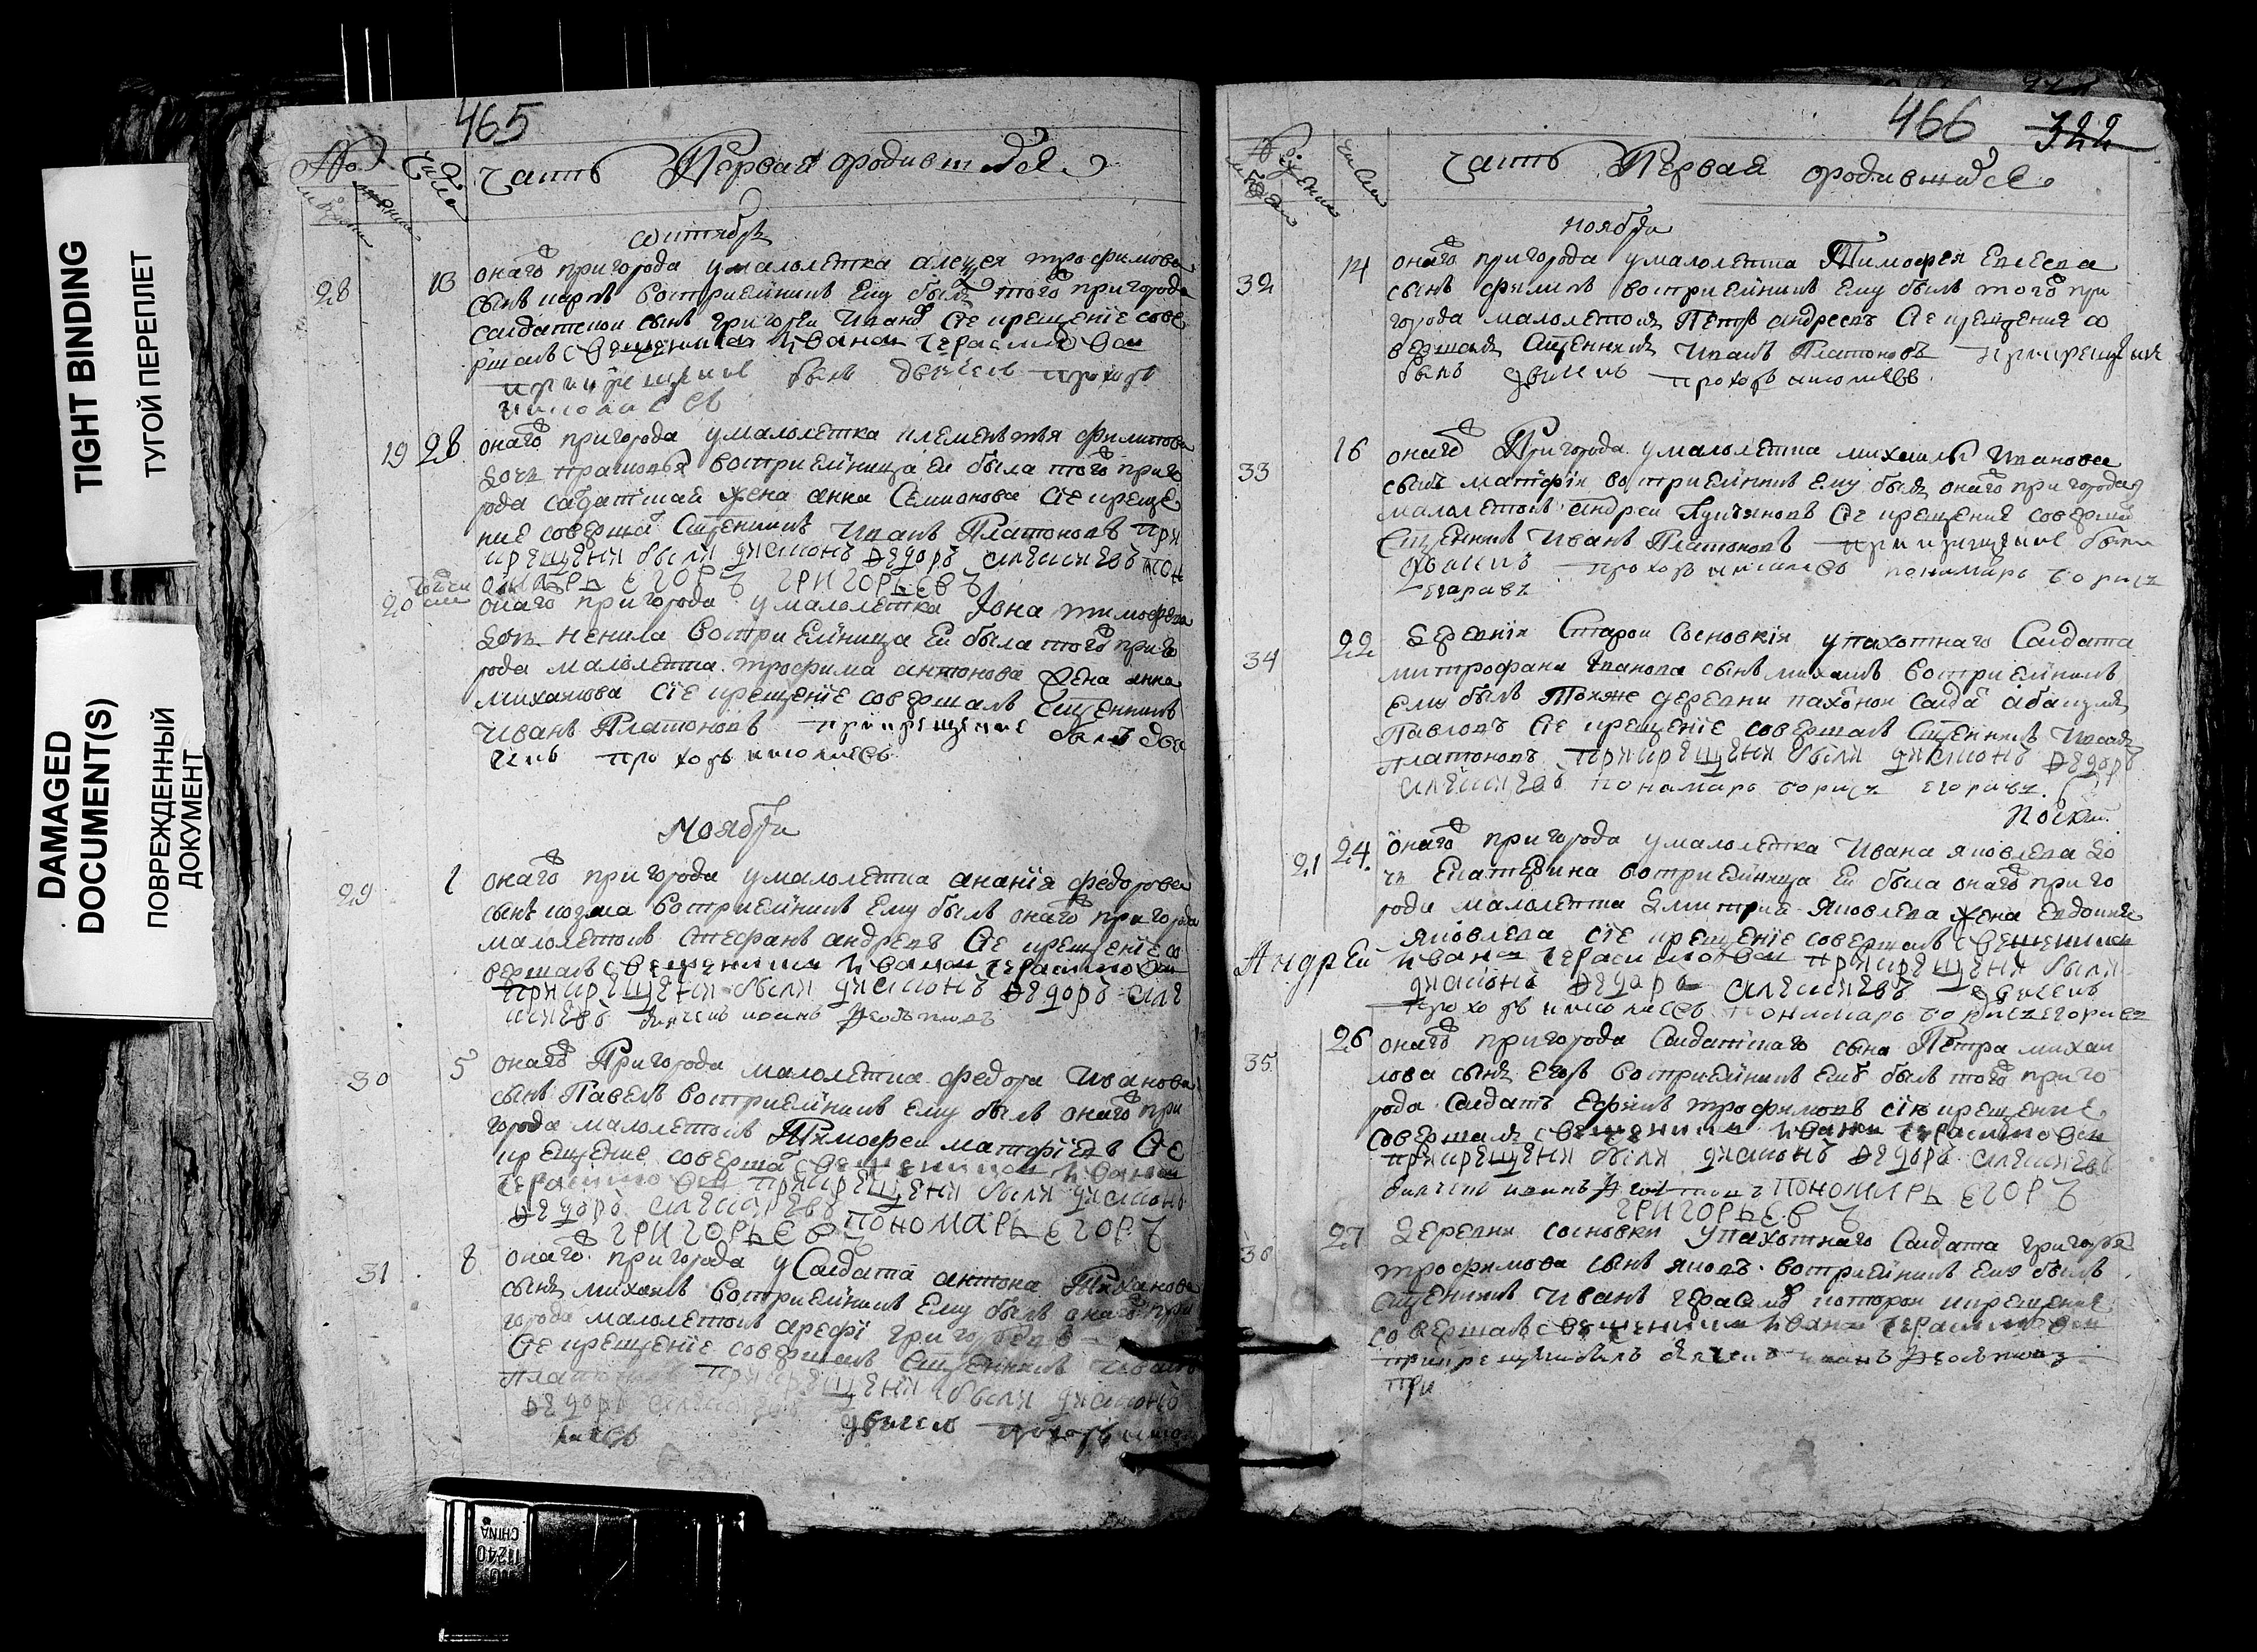 TIGHT BINDING
ТУГОЙ ПЕРЕПЛЕТ
DAMAGED
DOCUMENT(S)
ПОВРЕЖДЕННЫЙ
ДОКУМЕНТ
465
часть Первая ородившихся
сентябрь
28 13 онаго пригорода умалолетка алексея трофимова
сынъ карпъ восприемникъ ему былъ того пригорода
салдатской сынъ григорей Иванов Сие крещение сове
ршалъ священникъ Иванъ герасимовъ
прикрещении былъ дьячекъ прохоръ
19 28 онаго пригорода умалолетка клементья филипова
дочь прасковья восприемница ей была того приго
рода салдатская жена анна Семионова Сие креще
ние соверша Сщенникъ Иванъ Платоновъ при
крещении были диаконъ Федоръ алексиевъ пон
омарь ЕГОРЪ ГРИГОРЬЕВЪ
20 онаго пригорода умалолетка тимофеева
дочь ненила восприемница ей была того приго
рода малолетка трофима антонова жена анна
михаилова Сие крещение совершалъ Сщенникъ
Иванъ Платоновъ прикрещении былъ дья
чекъ прохоръ
Ноября
29 1 онаго пригорода умалолетка анания федорова
сынъ козма восприемникъ ему былъ онаго пригорода
малолетокъ Стефанъ андреевъ Сие крещение со
вершалъ священникъ Иванъ герасимовъ
прикрещении были диаконъ Федоръ але
ксиевъ дьячекъ иванъ
30 5 онаго Пригорода малолетка федора Иванова
сынъ Павелъ восприемникъ ему былъ онаго при
города малолетокъ Тимофей матфиев Сие
крещение соверша священникъ Иванъ
герасимовъ прикрещении были диаконъ
Федоръ алексиевъ ПОНОМАРЬ ЕГОРЪ
ГРИГОРЬЕВЪ
31 8 онаго пригорода у Салдата антона Тиханова
сынъ михаилъ восприемникъ ему былъ онаго при
города малолетокъ арефи григорьевъ
Сие крещение совершалъ Сщенникъ Иванъ
платоновъ прикрещении были диаконъ
Федоръ алексиевъ
дьячекъ прохоръ
466 322
часть Первая ородившихся
ноября
32 14 онаго пригорода умалолетка Тимофея Евсеева
сынъ филипъ восприемникъ ему былъ того при
города малолетокъ Петръ андреевъ Сие крещение со
вершалъ Сщенникъ Иванъ Платоновъ прикрещении
былъ дьячекъ прохоръ
33 16 онаго Пригорода умалолетка михаила Иванова
сынъ матфiи восприемникъ ему былъ онаго пригорода
малолетокъ андрей Лукиановъ Сие крещение совершал
Сщенникъ Иванъ Платоновъ прикрещении были
дьячекъ прохоръ пономарь борисъ
егоравъ
34 22 Деревни Старой Сосновки упахотнаго Салдата
митрофана Иванова сынъ михаилъ восприемникъ
ему былъ Тояже деревни пахотной салда
Павловъ Сие крещение совершалъ Сщенникъ Иванъ
платоновъ прикрещении были диаконъ Федоръ
алексиевъ пономарь борисъ егоривъ
21 24 онаго пригорода умалолетка Ивана яковлева до
чь Екатерина восприемница ей была онаго приго
рода малолетка Дмитрия Яковлева жена Евдокия
яковлева сие крещение совершалъ священникъ
Андрей Иванъ герасимовъ прикрещении были
диаконъ Федоръ алексиевъ дьячекъ
прохоръ пономарь борисъ егоривъ
35 26 онаго пригорода Салдатскаго сына Петра михаи
лова сынъ егоръ восприемникъ ему былъ того приго
рода Салдатъ Ефимъ трофимовъ сию крещение
совершалъ священникъ Иванъ герасимовъ
прикрещении были диаконъ Федоръ алексиевъ
дьячекъ иванъ ПОНОМАРЬ ЕГОРЪ
ГРИГОРЬЕВЪ
36 27 Деревни сосновки Упахотнаго Салдата григорья
трофимова сынъ яковъ восприемникъ ему былъ
Сщенникъ Иванъ герасимов которой икрещение
совершалъ священникъ Иванъ герасимовъ
прикрещении былъ дьячекъ иванъ
при